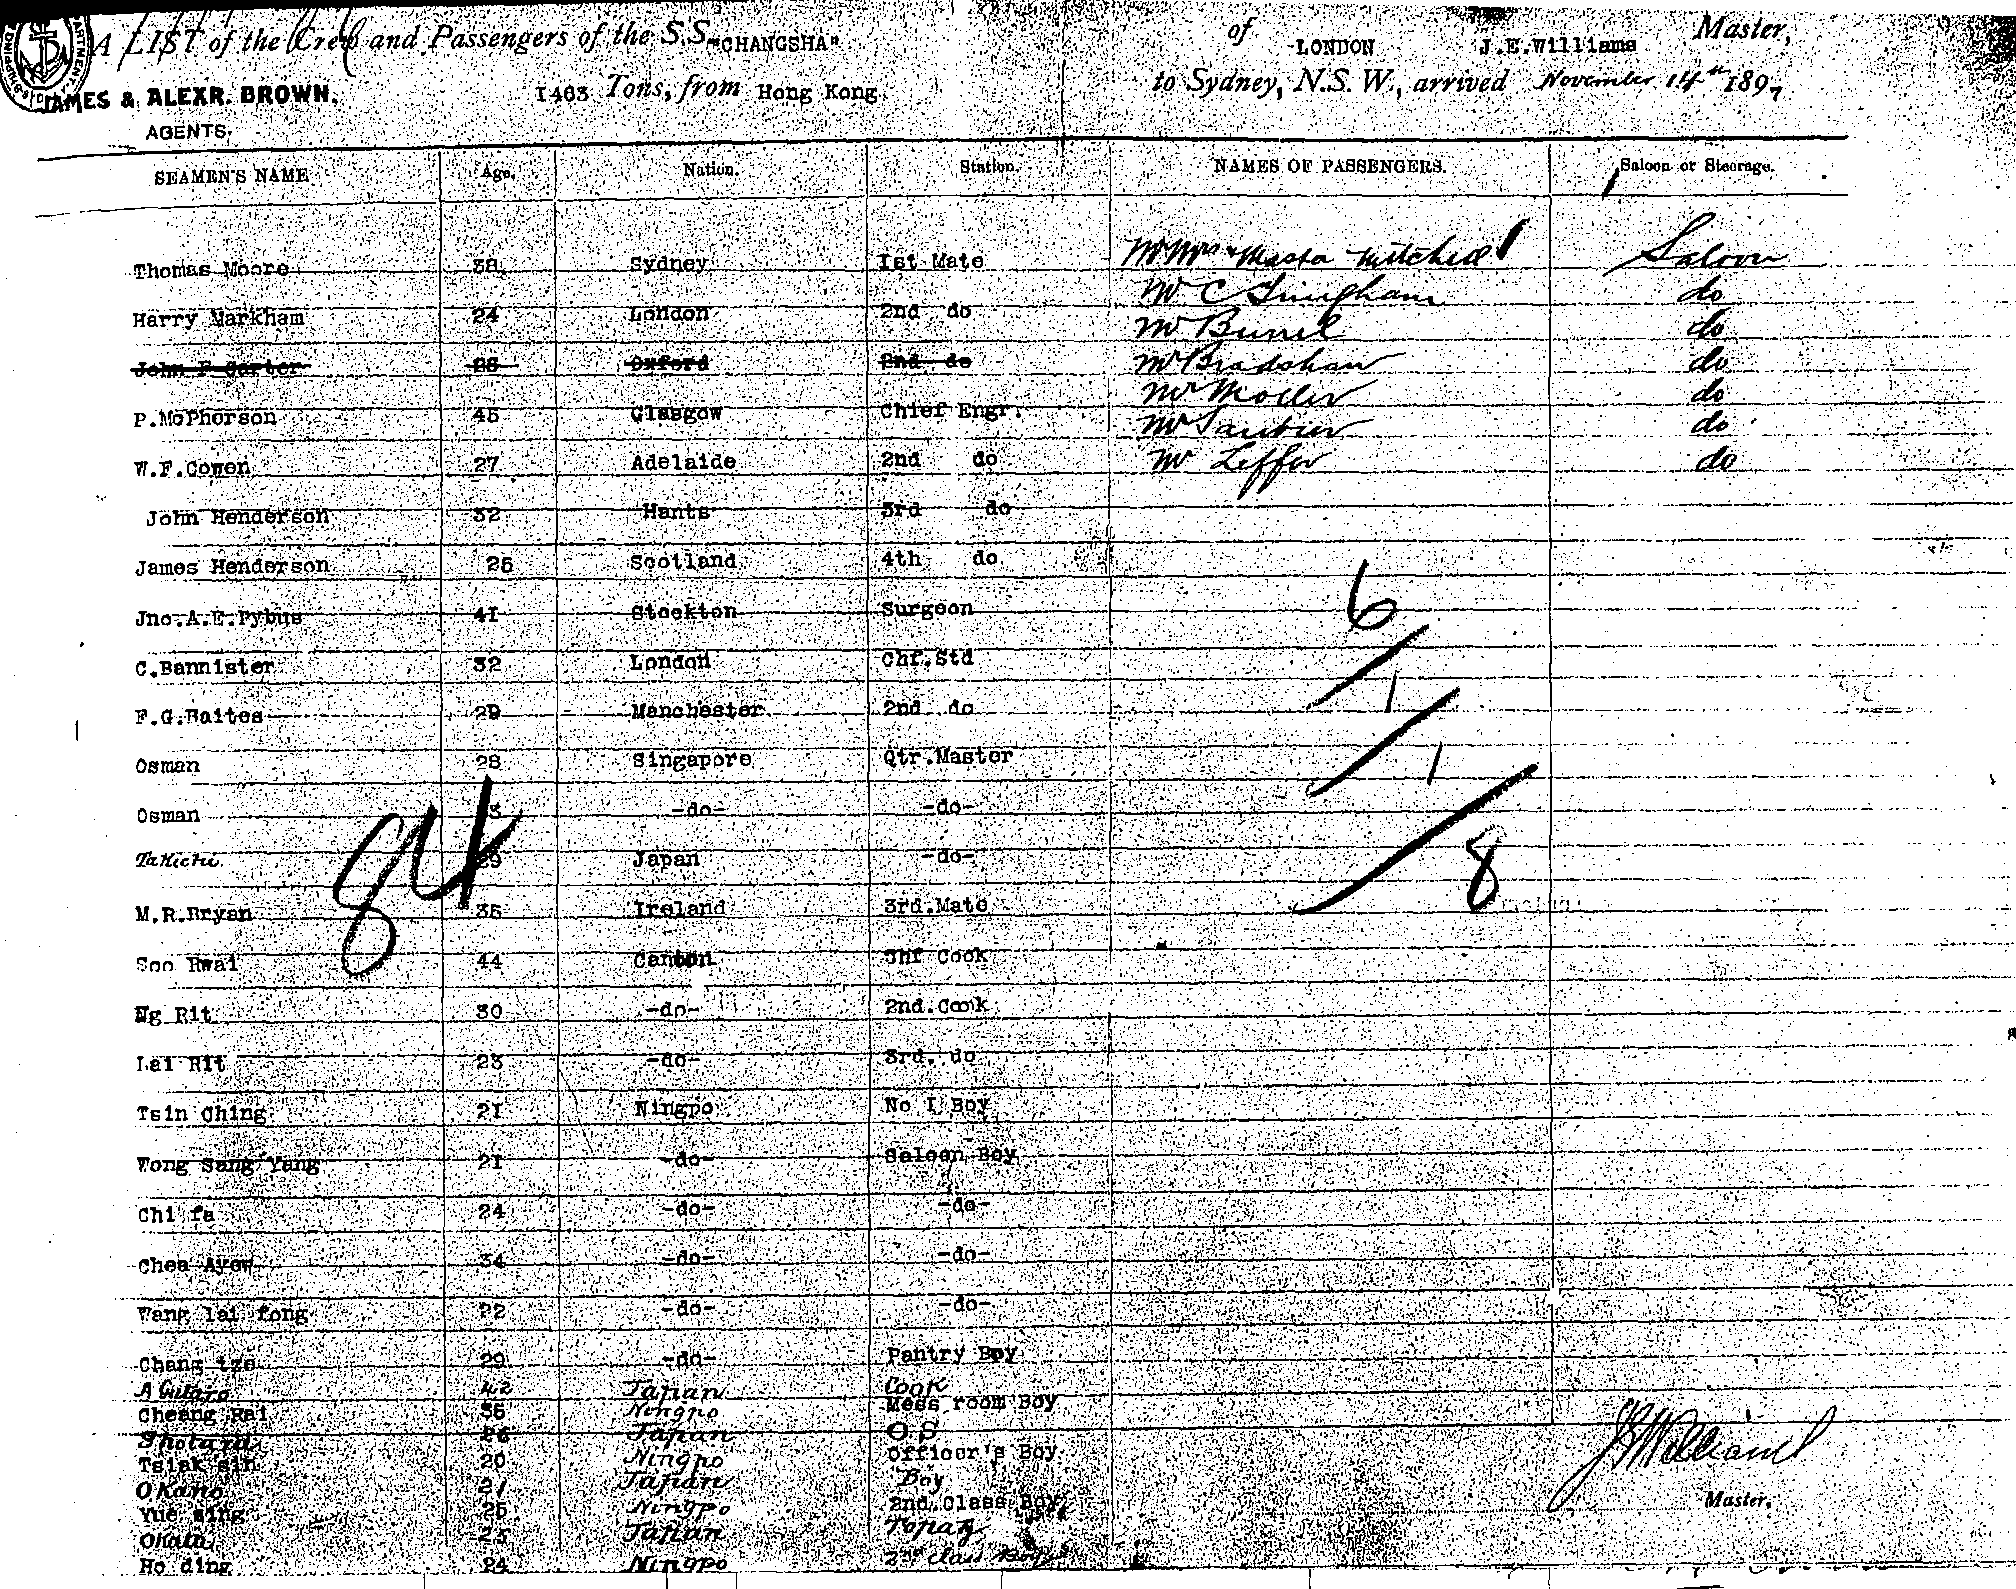 A LIST of the Crew and Passengers of the S.S. "CHANGSHA" of LONDON J.E.Williams Master,
JAMES & ALEXR. BROWN. 1463 Tons, from Hong Kong to Sydney, N.S.W., arrived November 14th 1897
AGENTS.
SEAMEN'S NAME Age. Nation. Station. NAMES OF PASSENGERS. Saloon or Steerage.
Thomas Moore 38 Sydney Ist Mate Mr Mrs & Master Mitchell Saloon
Mr C do
Harry Markham 24 London 2nd do Mr do
John F Carter 28 Oxford 2nd do Mr Bradshaw do
Mr Moller do
P.McPherson 45 Glasgow Chief Engr. Mr do
W.F.Cowen 27 Adelaide 2nd do Mr do
John Henderson 32 Hants 3rd do
James Henderson 25 Scotland 4th do
6
Jno.A.E.Pybus 4I Stockton Surgeon
C.Bannister 32 London Chf.Std
1
F.G.Baites 29 Manchester 2nd do
Osman 28 Singapore Qtr.Master
1
Osman -do- -do-
Takichi 29 Japan -do-
8
M.R.Bryan 35 Ireland 3rd.Mate
Soo Hwai 44 Canton Chf Cook
Ng Rit 30 -do- 2nd.Cook
Lai Rit 23 -do- 3rd. do
Tsin Ching 2I Ningpo No I Boy
Wong Sang Yang 2I -do- Saloon Boy
Chi fa 24 -do- -do-
Chea Ayew 34 -do- -do-
Wang lai fong 22 -do- -do-
Chang tze 29 -do- Pantry Boy
42 Japan Cook
Cheang Rai 35 Ningpo Mess room Boy
26 Japan O S
Tsiak sin 20 Ningpo Officer's Boy
Okano 21 Japan Boy
Yue ming 25 Ningpo 2nd.Class Boy
25 Japan Topaz
Ho ding 24 Ningpo 2nd class Boy
J E Williams
Master.